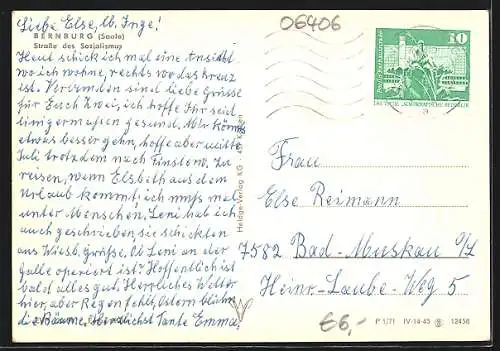 Liebe Else, lb. Inge!
BERNBURG (Saale)
Straße des Sozialismus
Heut schick ich mal eine Ansicht
wo ich wohne, rechts wo das kreuz
ist. Verbunden sind liebe Grüsse
für Euch zwei, ich hoffe Ihr seid
einigermaßen gesund. Mir könnt's
etwas besser gehn, hoffe aber mitte
Juli trotzdem nach Finsterw. zu
reisen, wenn Elsbeth aus dem
Urlaub kommt, ich muß mal
unter Menschen, Leni hab ich
auch geschrieben, sie schickten
aus Wiesb. Grüße. Ob Leni an der
Galle operiert ist? Hoffentlich ist
bald alles gut. Herrliches Wetter
hier, aber Regen fehlt, Ostern blühn
die Bäume. Herzlichst Tante Emma.
06406
10
DEUTSCHE DEMOKRATISCHE REPUBLIK
Heldge-Verlag KG
Köthen
Frau
Else Reimann
7582 Bad-Muskau O/L
Heinr.-Laube-Weg 5
€6,-
P 1/71 IV-14-45 12456